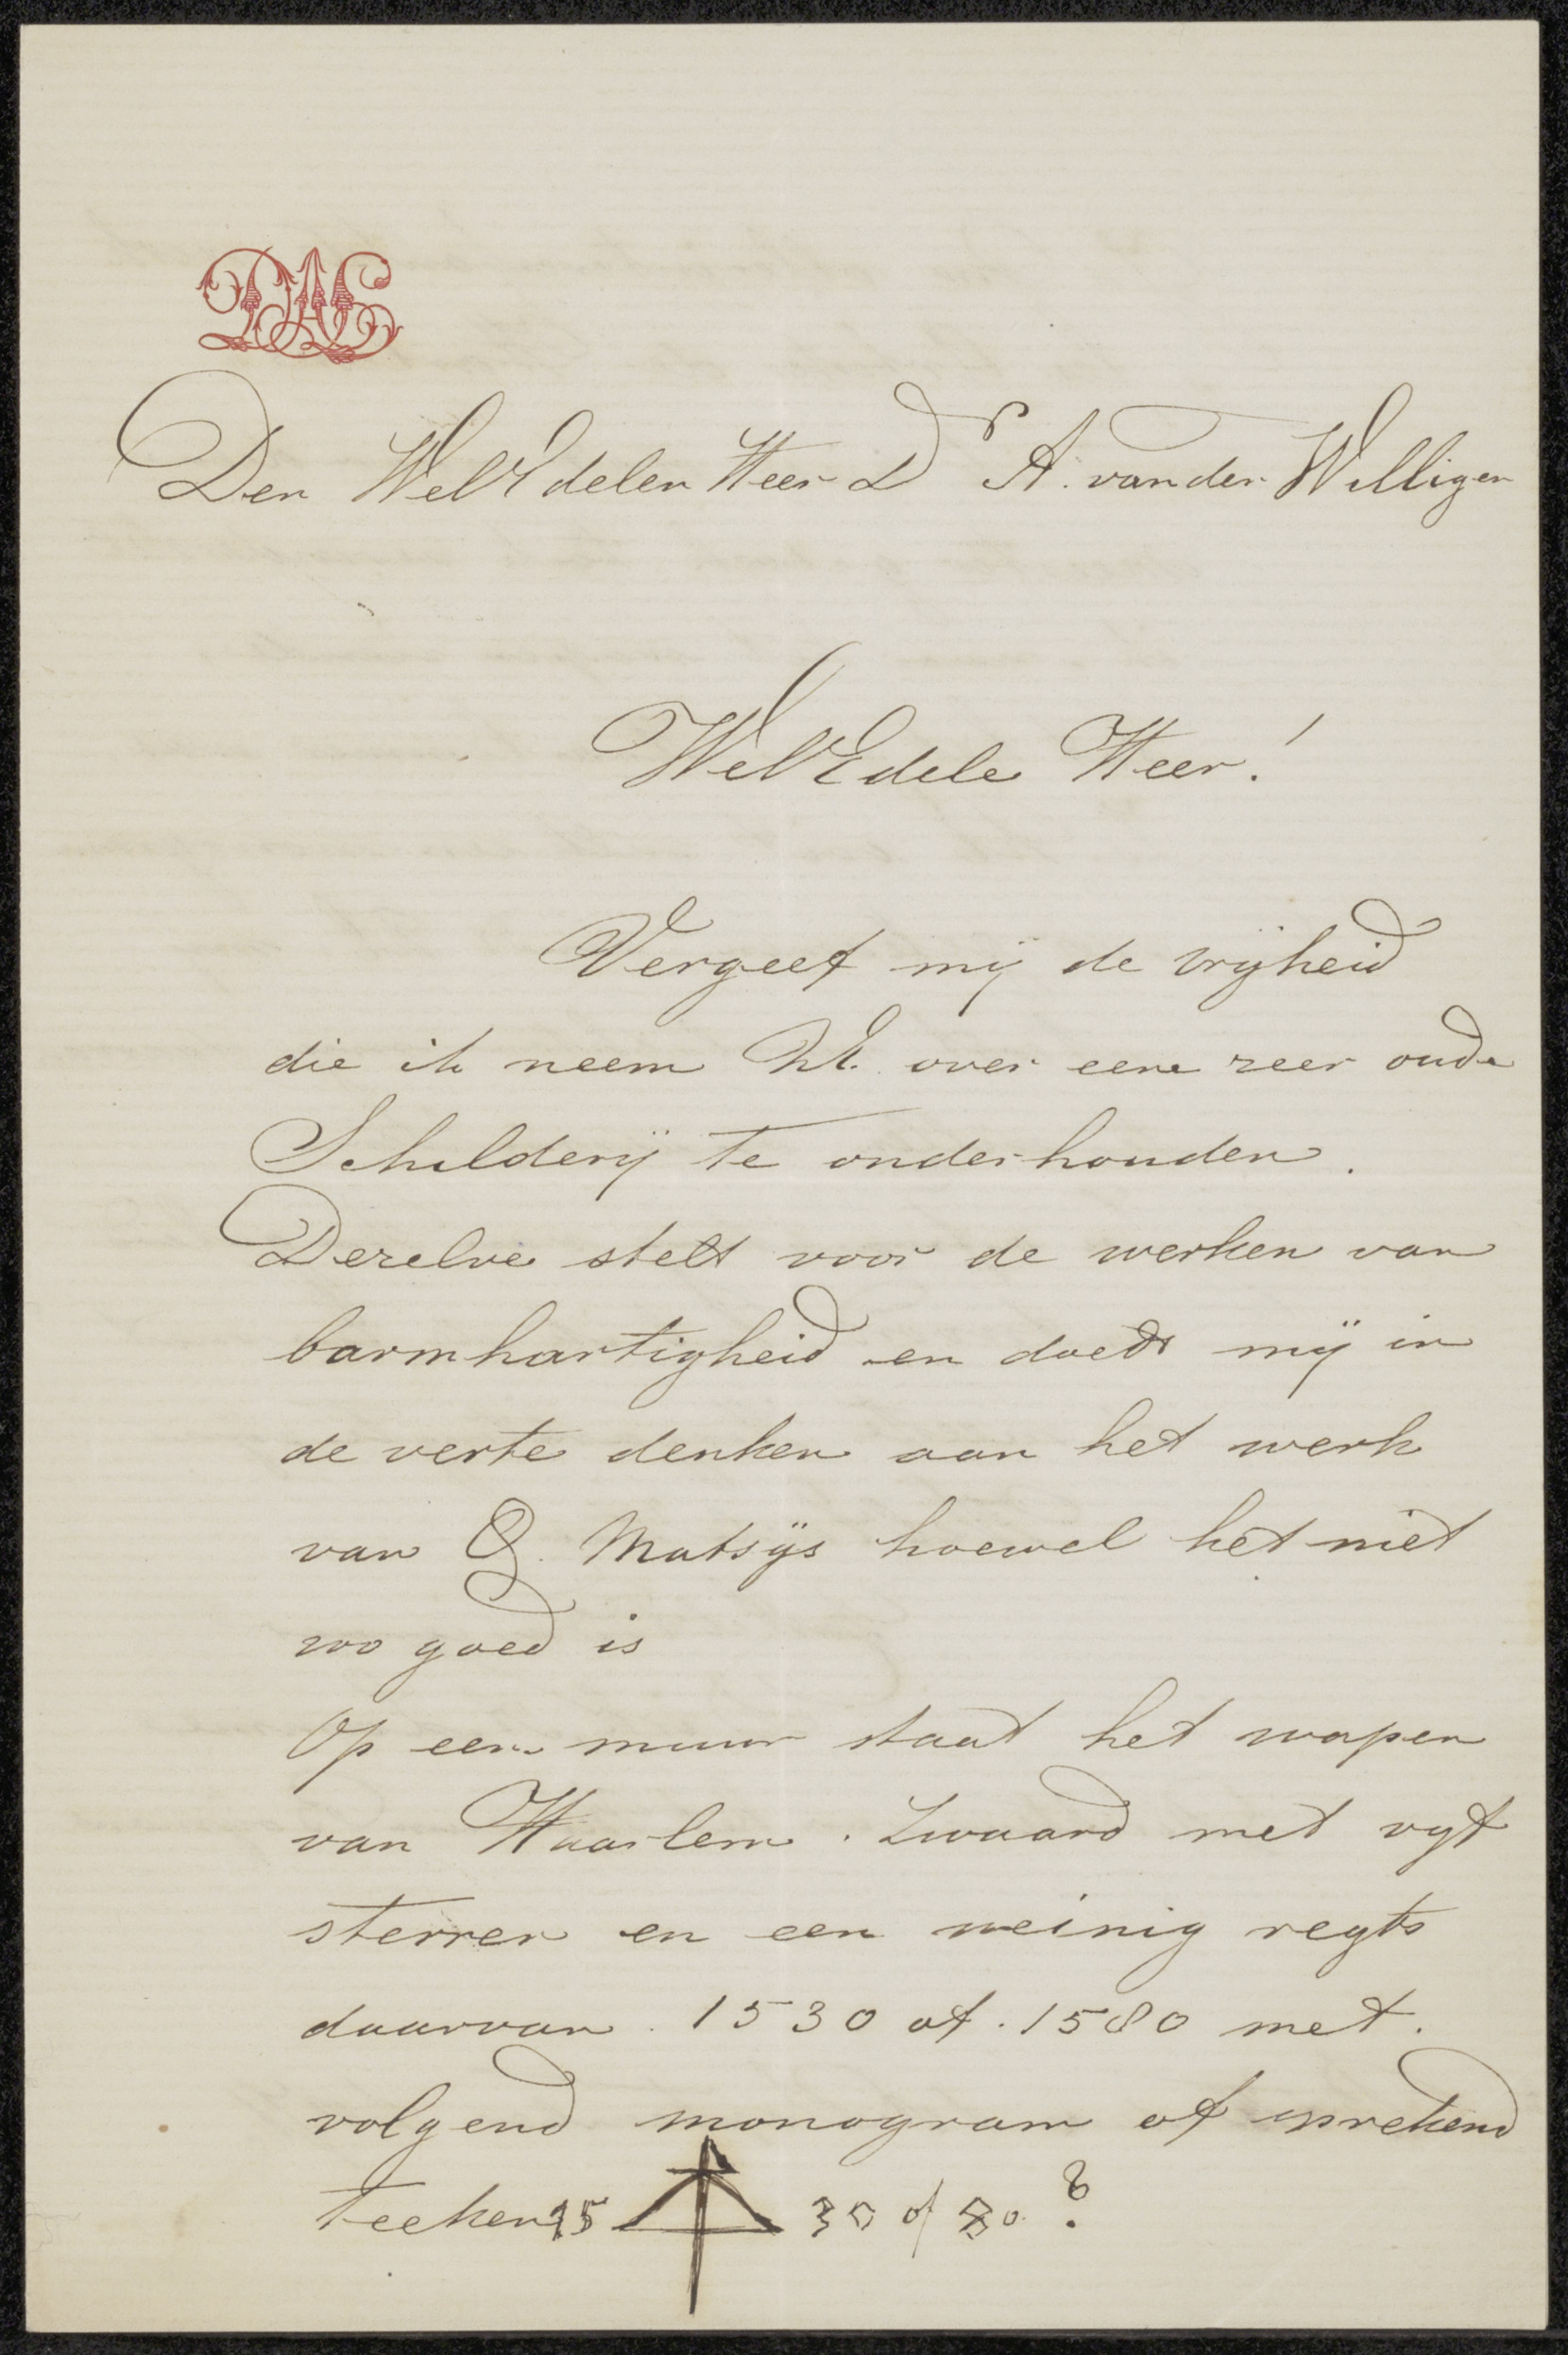 DAL
Den WelEdelen Heer Dr A. van der Willigen
WelEdele Heer!
Vergeef mij de vrijheid
die ik neem UE. over eene zeer oude
Schilderij te onderhouden.
Dezelve stelt voor de werken van
barmhartigheid en doedt mij in
de verte denken aan het werk
van Q. Matsijs hoewel het niet
zoo goed is
Op een muur staat het wapen
van Haarlem. Zwaard met vijf
sterren en een weinig regts
daarvan. 1530 of. 1580 met.
volgend monogram of sprekend
teeken 15 30 of 80?